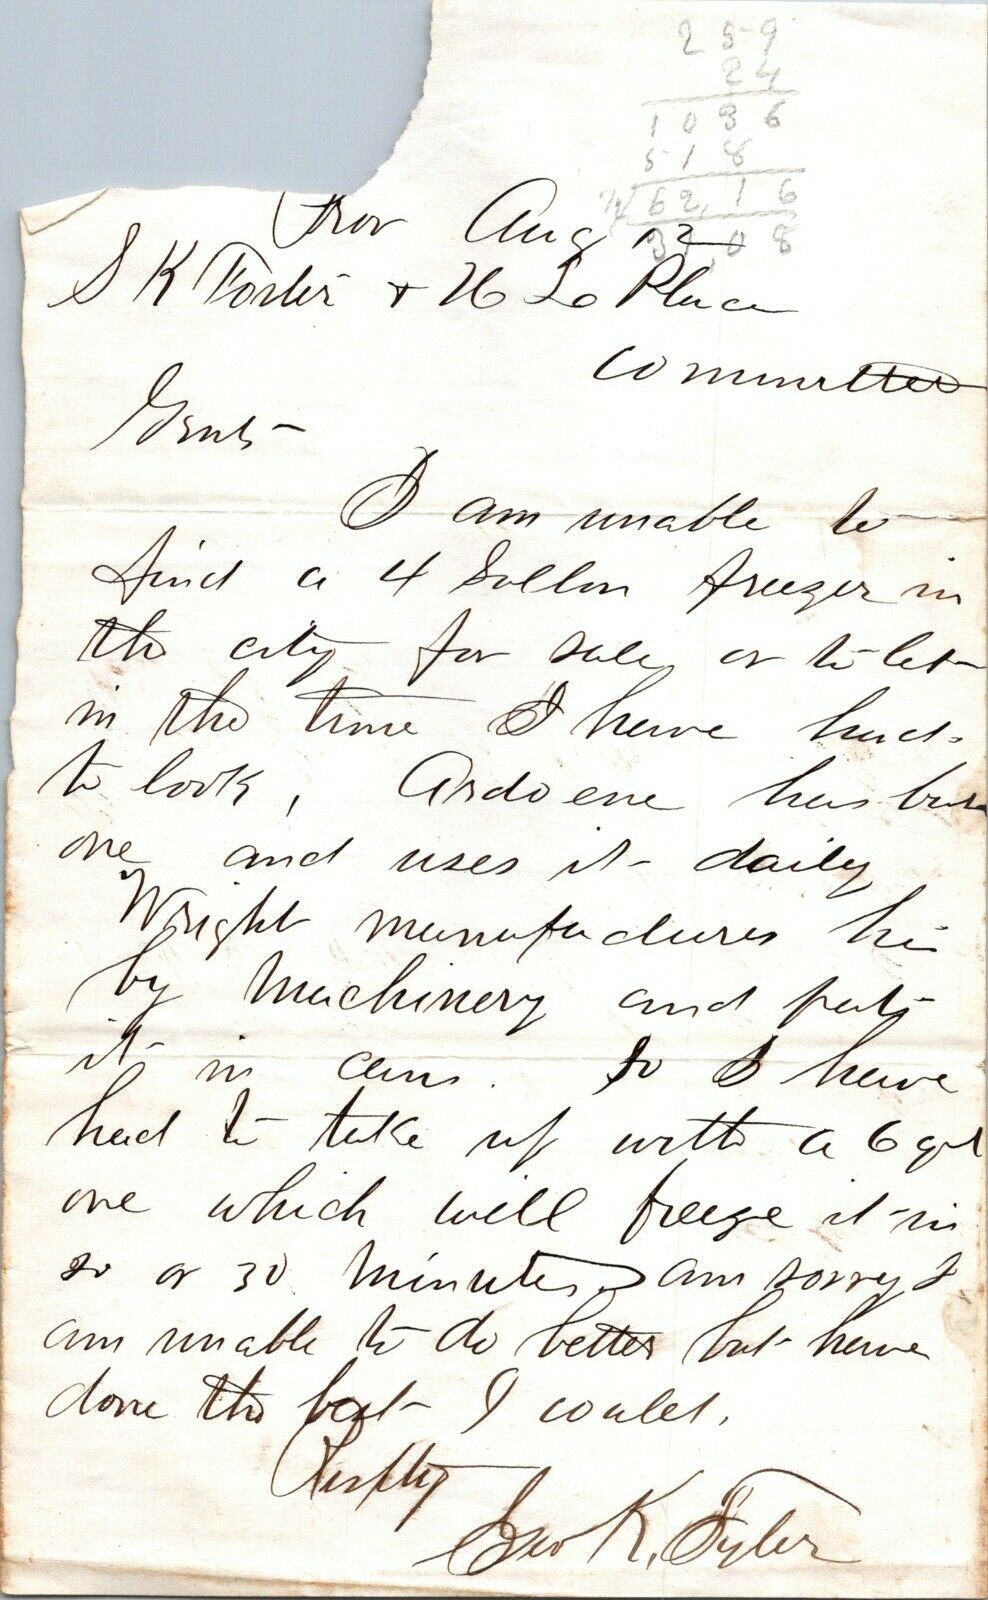 259
24
1036
518
62,16
31,08
Prov Aug 12
S K Foster + H L Place
Committee
Gents-
I am unable to
find a 4 Gallon freezer in
the city for sale, or to let
in the time I have had
to look, Ardoene has but
one and uses it daily
Wright manufactures his
by Machinery and puts
it in cans. So I have
had to take up with a 6 gal
one which will freeze it in
20 or 30 Minutes am sorry I
am unable to do better but have
done the best I could,
Resptly
Geo K. Tyler